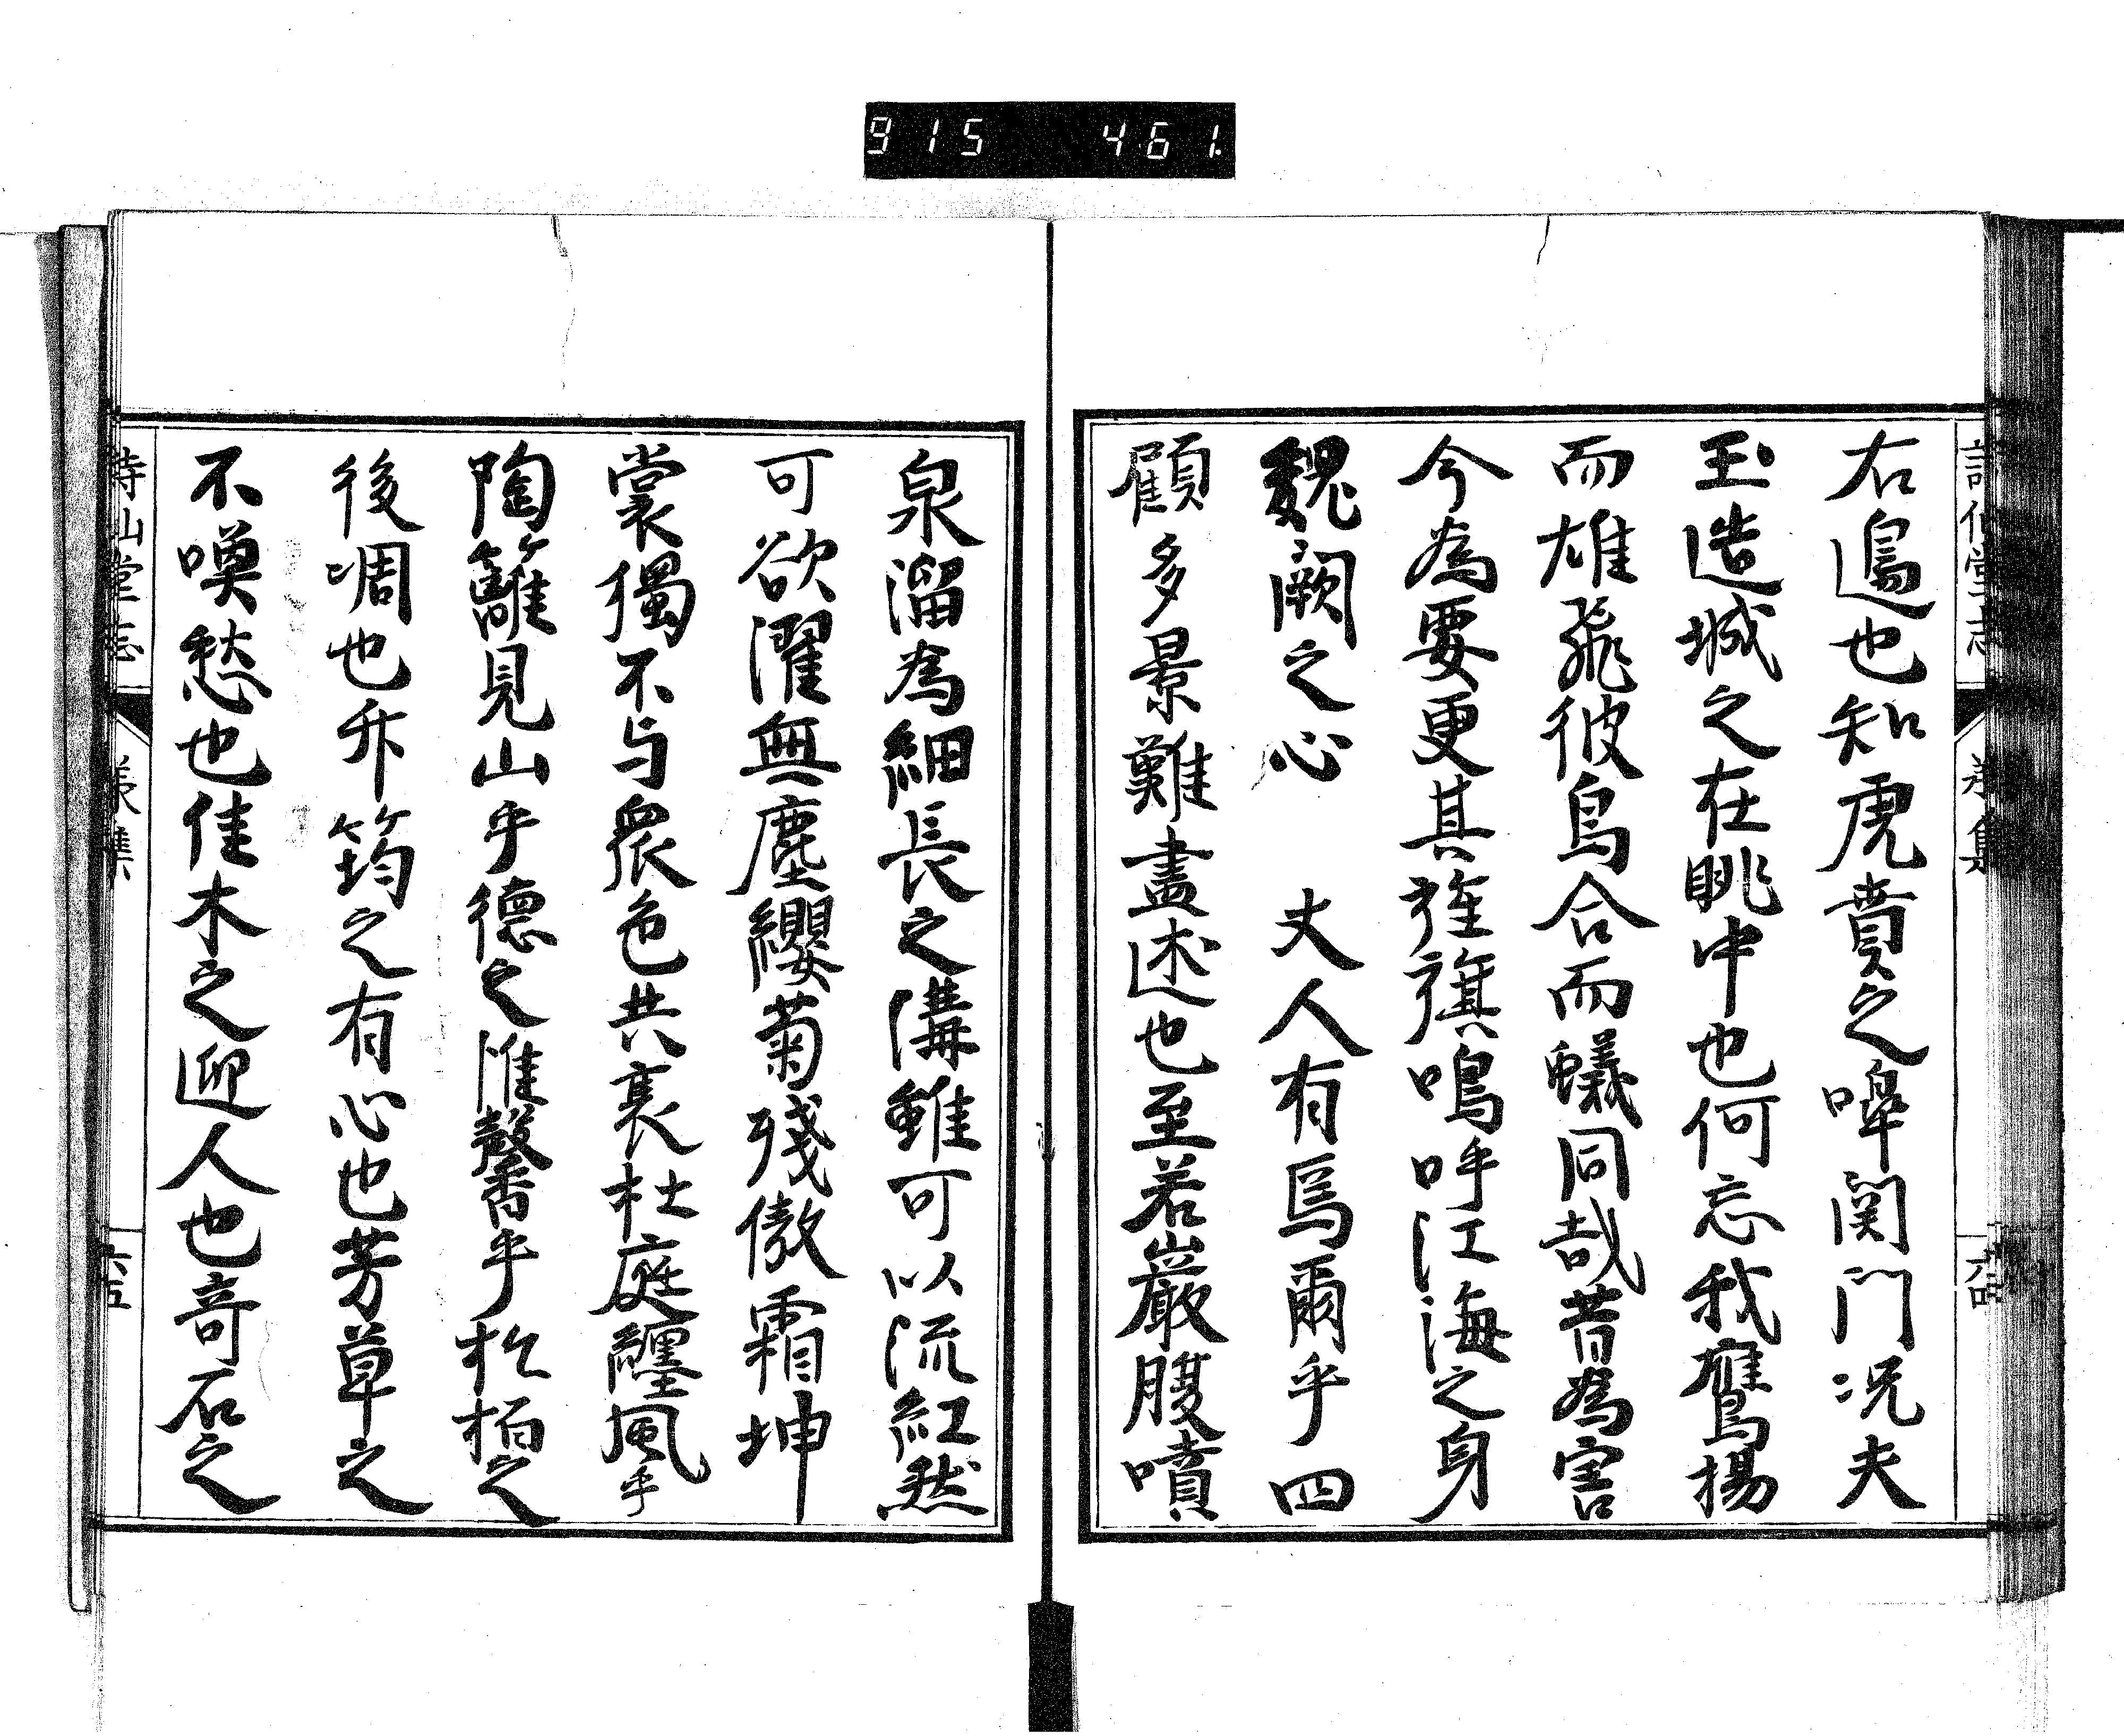 915 461.
詩仙堂志
右邉也知虎賁之嘷関门况夫
玉造城之在眺中也何忘我鷹揚
而雄飛彼烏合而蟻同哉昔為害
今為要更其旌旗鳴呼江海之身
魏闕之心 丈人有焉爾乎四
顧多景難盡述也至若巌腹噴
泉溜為細長之溝雖可以流紅然
可欲濯無塵纓菊殘傲霜坤
裳獨不与衆色共衰杜庭纒風乎
陶籬見山乎德之惟馨乎松柏之
後凋也舛筠之有心也芳草之
不喚愁也佳木之迎人也竒石之
詩仙堂志
六五